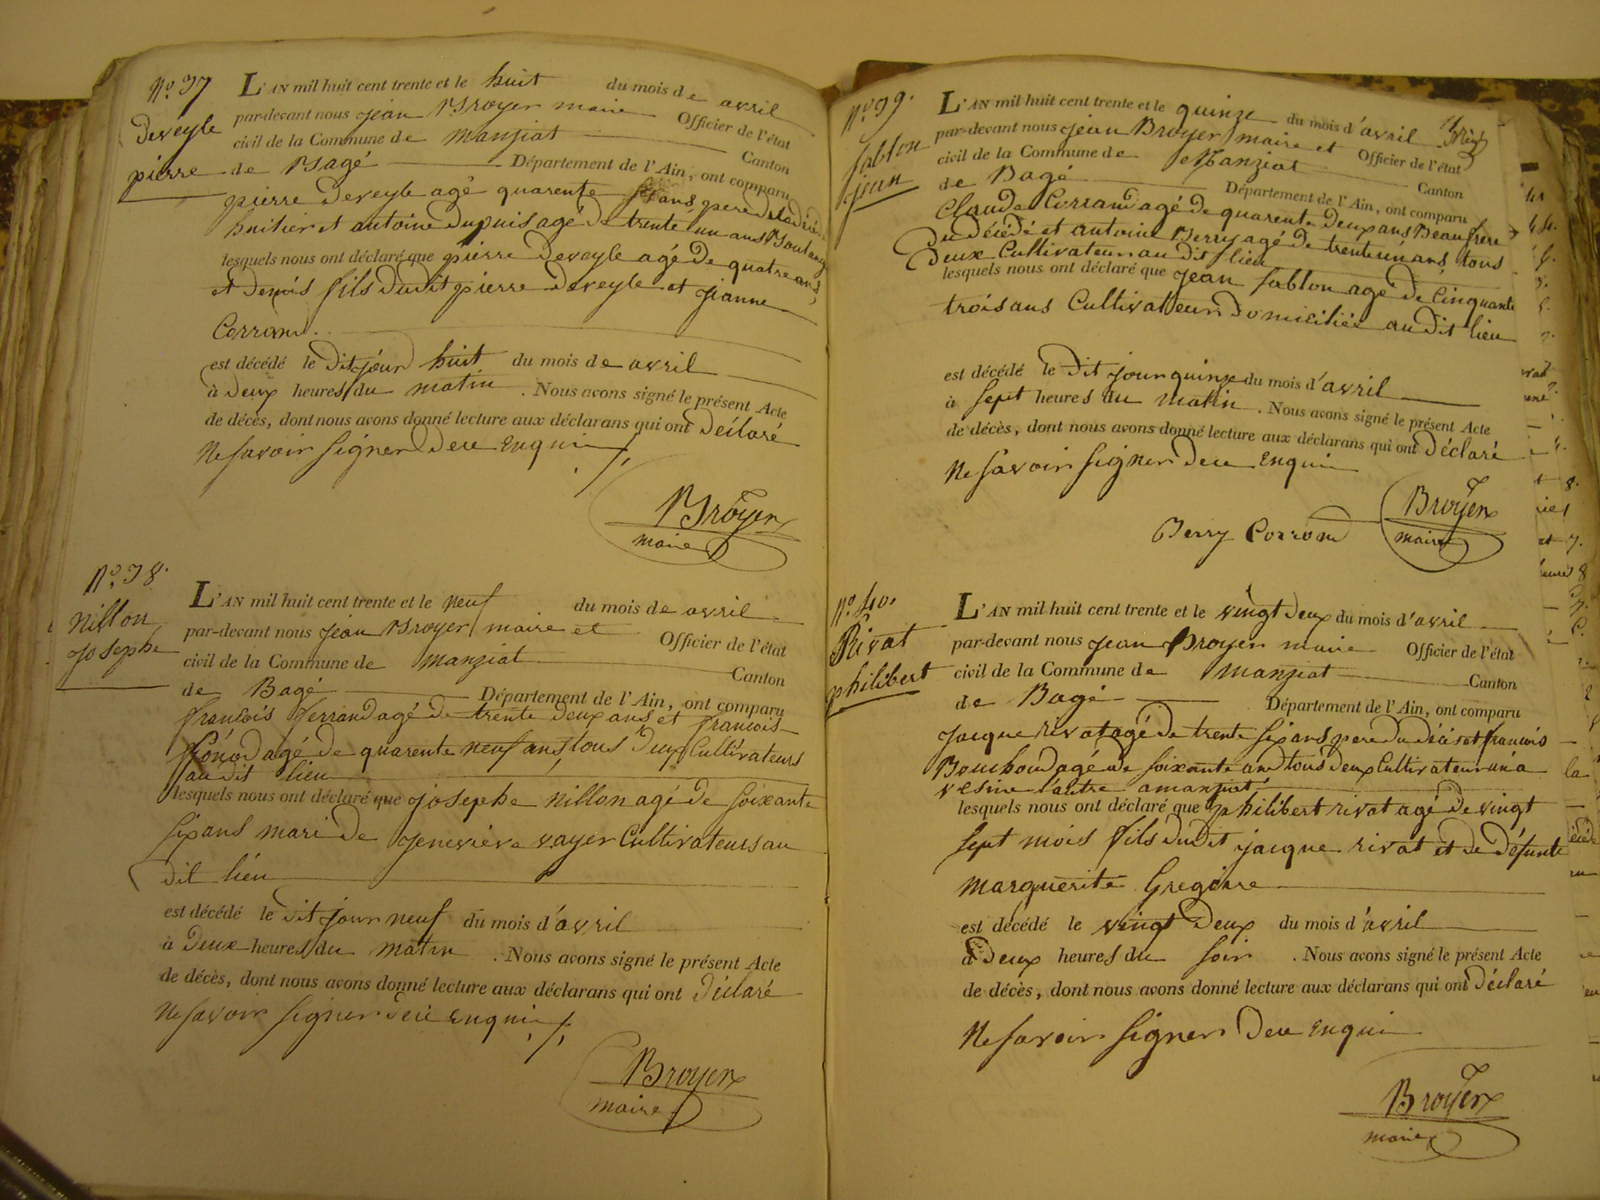 N.o 37
deveyle
pierre
L'AN mil huit cent trente et le huit du mois de avril
par-devant nous jean Broyer maire Officier de l'état
civil de la Commune de manziat Canton
de Bagé Département de l'Ain, ont comparu
pierre deveyle agé quarente ans, pere du
huitier et antoine dupuis agé de trente un ans
lesquels nous ont déclaré que pierre deveyle agé de quatre ans
et demis fils dudit pierre deveyle et jeanne
Corrand
est décédé le dit jour huit du mois de avril
à deux heures du matin. Nous avons signé le présent Acte
de décès, dont nous avons donné lecture aux déclarans qui ont déclaré
ne savoir signer de ce enqui
Broyer
maire
N.o 38.
nillon
josephe
L'AN mil huit cent trente et le neuf du mois de avril
par-devant nous jean Broyer maire et Officier de l'état
civil de la Commune de manziat Canton
de Bagé Département de l'Ain, ont comparu
francois ferrand agé de trente deux ans et francois
agé de quarente neuf ans, tous deux Cultivateurs
au dit lieu
lesquels nous ont déclaré que josephe nillon agé de soixante
six ans mari de jenevieve vayer Cultivateurs au
dit lieu
est décédé le dit jour neuf du mois d'avril
à deux heures du matin. Nous avons signé le présent Acte
de décès, dont nous avons donné lecture aux déclarans qui ont déclaré
ne savoir signer de ce enqui
Broyer
maire
N.o 39.
sablon
jean
L'AN mil huit cent trente et le quinze du mois d'avril
par-devant nous jean Broyer maire et Officier de l'état
civil de la Commune de Manziat Canton
de Bagé Département de l'Ain, ont comparu
Claude Corrand agé de quarente deux ans Beaufrere
du décédé et antoine Berry agé de trente un ans, tous
deux Cultivateur au dit lieu
lesquels nous ont déclaré que jean sablon agé de Cinquante
trois ans Cultivateur domicilié au dit lieu
est décédé le dit jour quinze du mois d'avril
à sept heures du matin. Nous avons signé le présent Acte
de décès, dont nous avons donné lecture aux déclarans qui ont déclaré
ne savoir signer de ce enqui
Broyer
Berry Corrand maire
N.o 40.
Rivat
philibert
L'AN mil huit cent trente et le vingt deux du mois d'avril
par-devant nous jean Broyer maire Officier de l'état
civil de la Commune de manziat Canton
de Bagé Département de l'Ain, ont comparu
jacque rivat agé de trente six ans pere du décédé et francois
Bouchoud agé de soixante ans tous deux Cultivateur un a
vesine l'autre a manziat
lesquels nous ont déclaré que philibert rivat agé de vingt
sept mois fils dudit jacque rivat et de défunte
marguerite Gregoire
est décédé le vingt deux du mois d'avril
à deux heures du soir. Nous avons signé le présent Acte
de décès, dont nous avons donné lecture aux déclarans qui ont déclaré
ne savoir signer de ce enqui
Broyer
maire